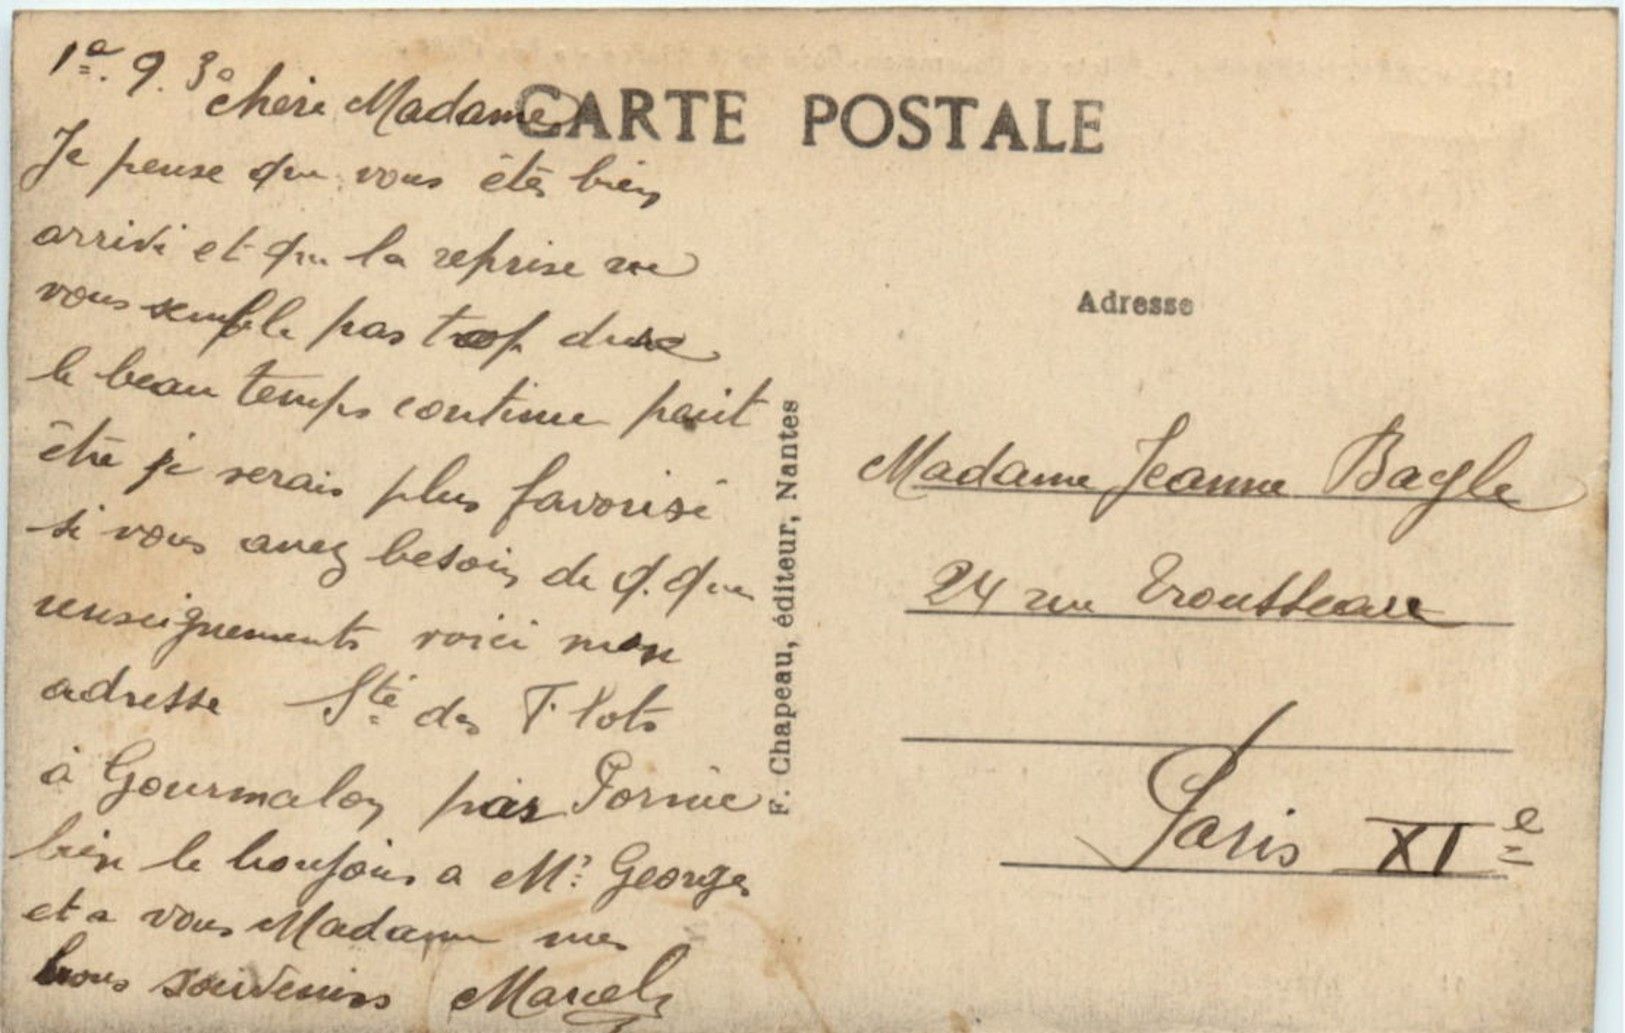 1er. 9. 30
chère Madame
CARTE POSTALE
Je pense que vous êtes bien
arrivé et que la reprise ne
vous semble pas trop dure
le beau temps continue peut
être je serais plus favorisé
si vous avez besoin de q. que
renseignements voici mon
adresse Sté des Flots
à Gourmalon par Pornic
bien le bonjour a Mr Georges
et a vous Madame mes
bons souvenirs Marcel
F. Chapeau, éditeur, Nantes
Adresse
Madame Jeanne Bayle
24 rue Trousseau
Paris XIe